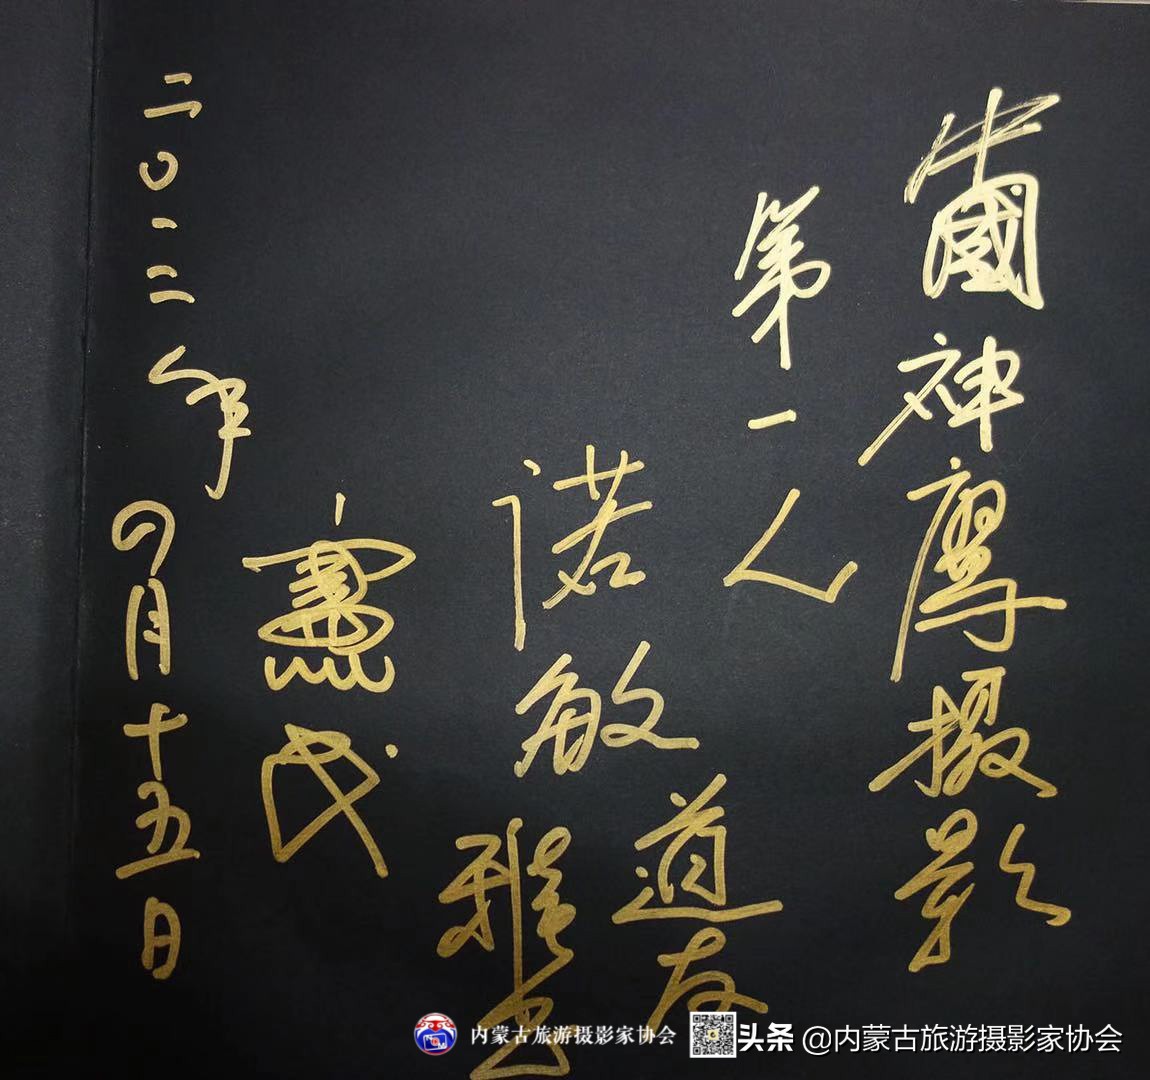 中國神摩摄影
第一人
诺敏
道友
雅
二〇一二年四月十五日
内蒙古旅游摄影家协会
头条 @内蒙古旅游摄影家协会